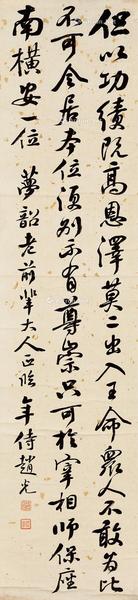 但以功绩既高恩澤莫二出入王命眾人不敢為比
不可令居本位須別示有尊崇只可於宰相師保座
南橫安一位 夢韶老前輩大人正臨 年侍趙光